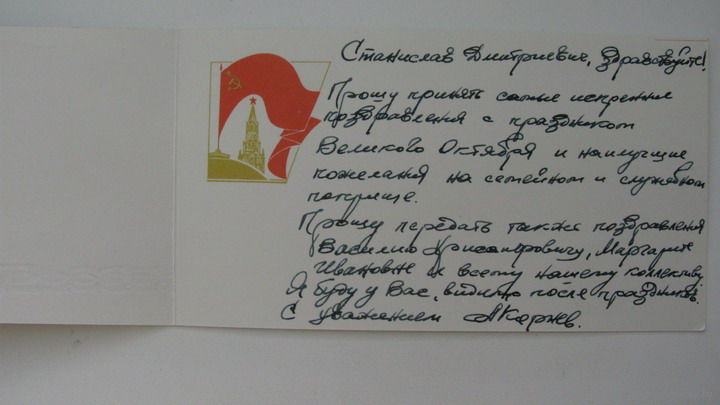 Станислав Дмитриевич, здравствуйте!
Прошу принять самые искренние
поздравления с праздником
Великого Октября и наилучшие
пожелания на семейном и служебном
поприще.
Прошу передать также поздравления
Василию Хрисанфовичу, Маргарите
Ивановне и всему нашему коллективу.
Я буду у Вас, видимо после праздников.
С уважением АКоржев.